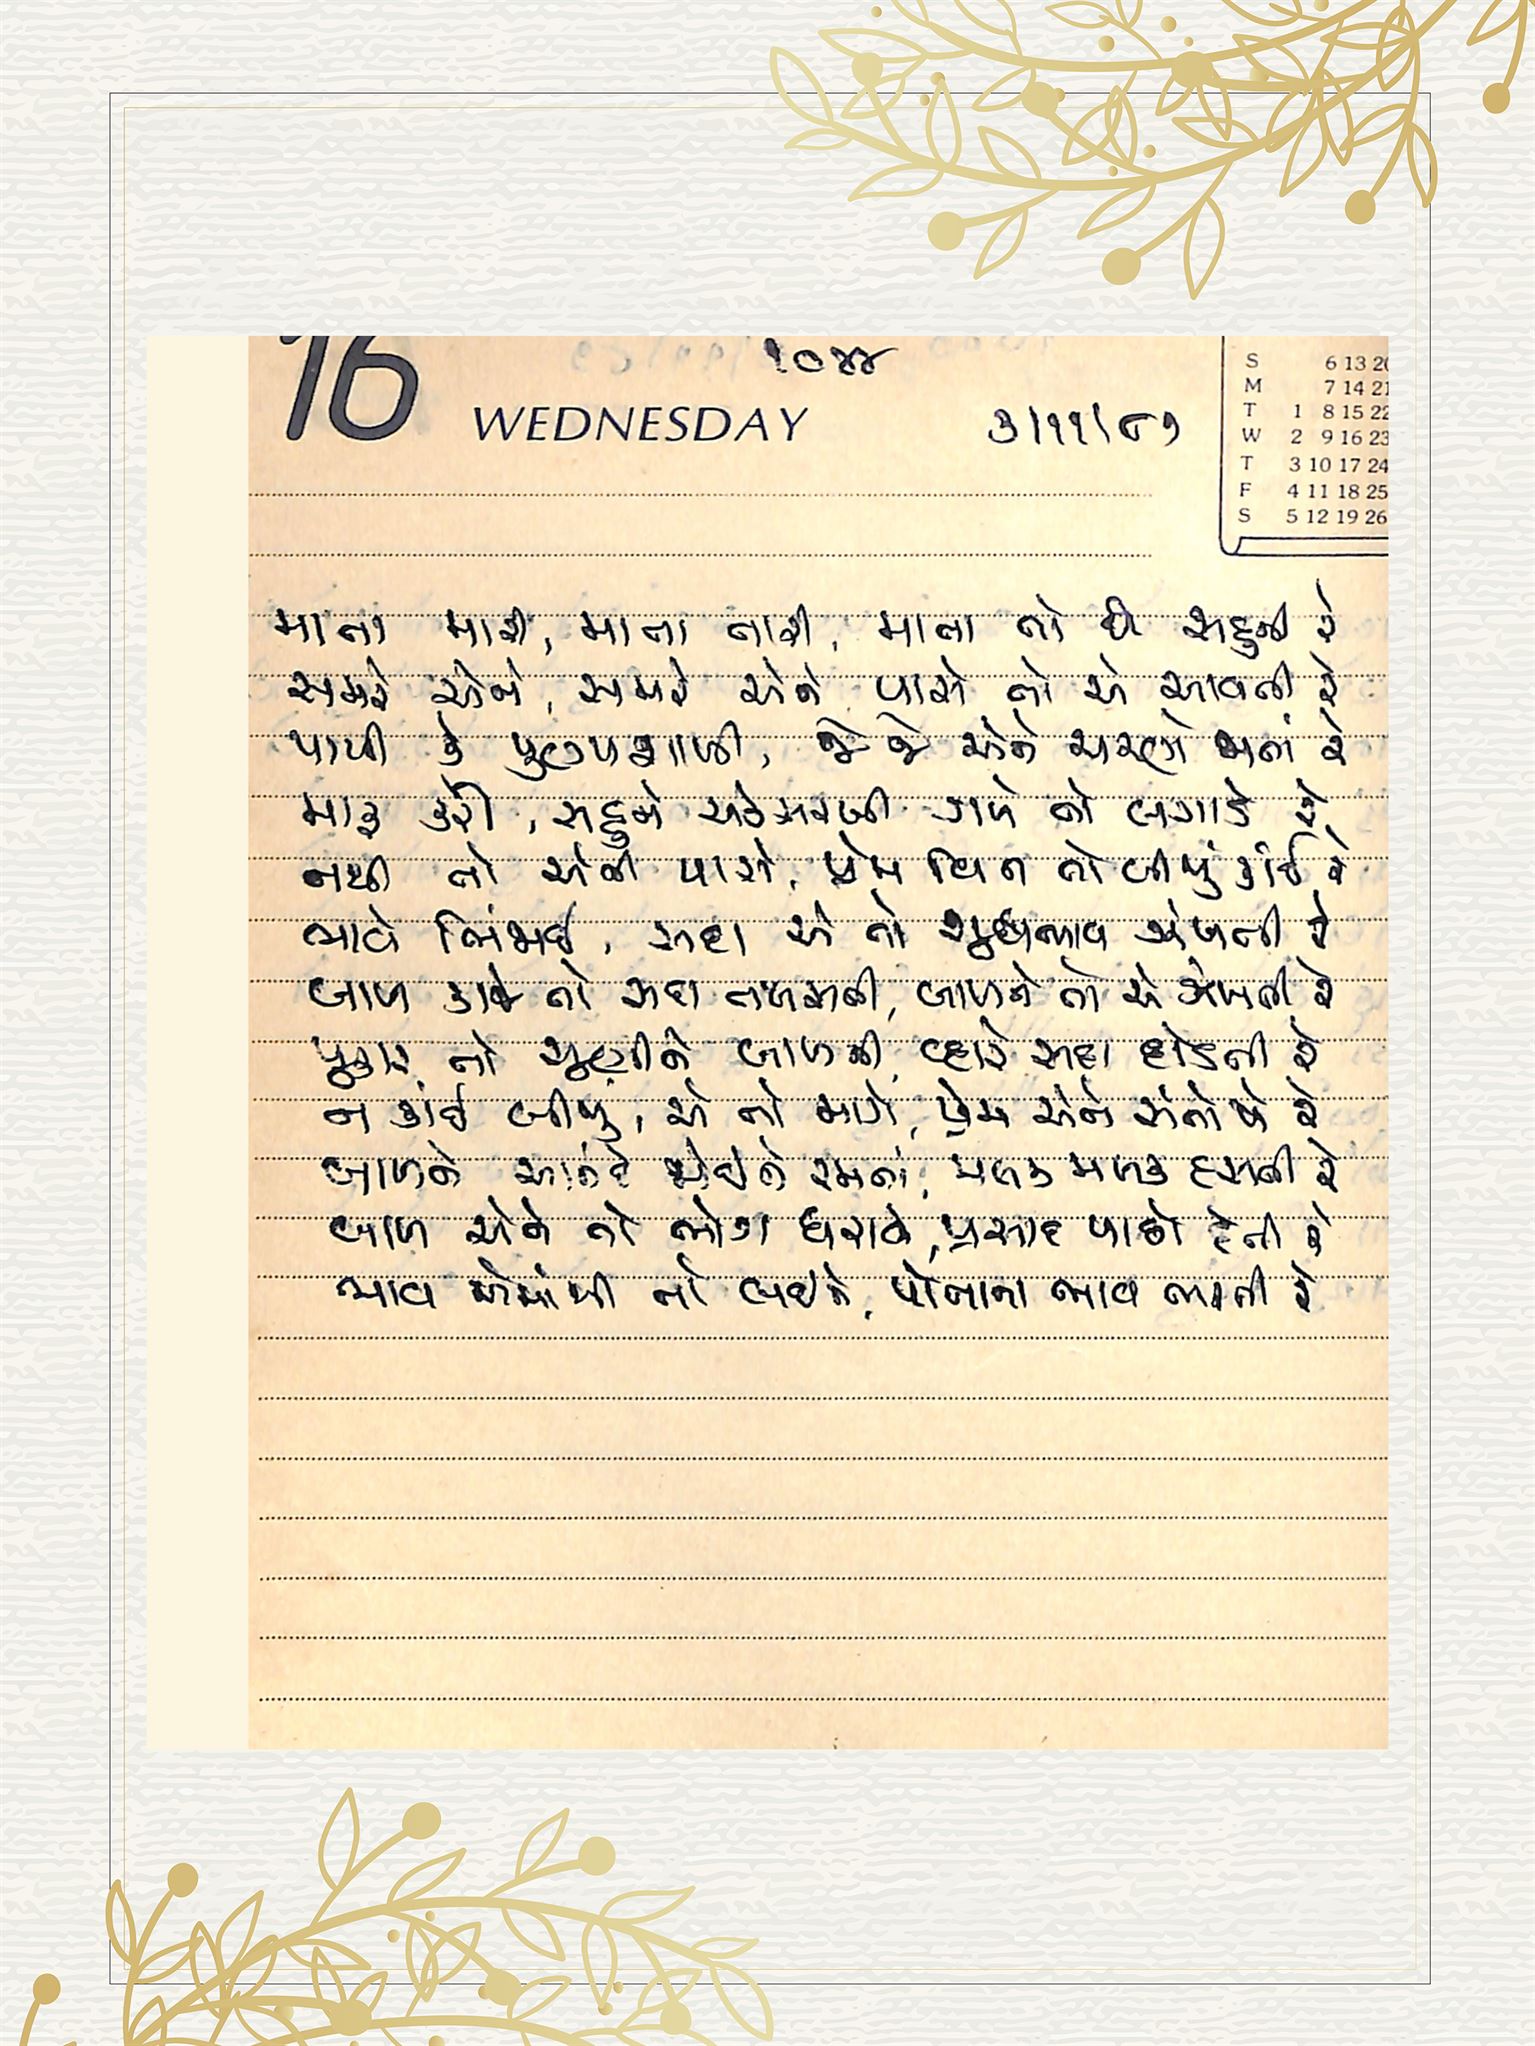 16
૧૦૪૪
WEDNESDAY
૩/૧૧/૮૭
S 6 13 20
M 7 14 21
T 1 8 15 22
W 2 9 16 23
T 3 10 17 24
F 4 11 18 25
S 5 12 19 26
માતા મારી, માતા તારી, માતા તો છે સહુની રે
સમરે એને, સમરે એને પાસે તો એ આવતી રે
પાપી કે પુણ્યશાળી, જે જે એને શરણે જતાં રે
માફ કરી, સહુને એકસરખી ગળે તો લગાડે રે
નથી તો એની પાસે, પ્રેમ વિન તો બીજું કાંઈ રે
ભાવે ભિંજાઈ, સદા એ તો શુદ્ધભાવ ઝંખતી રે
બાળ કાજે તો સદા તલસતી, બાળને તો એ ઝંખતી રે
પુકાર તો સુણીને બાળની, વ્હારે સદા દોડતી રે
ન કાંઈ બીજું, એ તો માગે, પ્રેમ એને સંતોષે રે
બાળને આનંદે જોઈને રમતાં, મલક મલક હસતી રે
બાળ એને તો ભોગ ધરાવે, પ્રસાદ પાછો દેતી રે
ભાવ એમાંથી તો લઈને, પોતાના ભાવ ભરતી રે